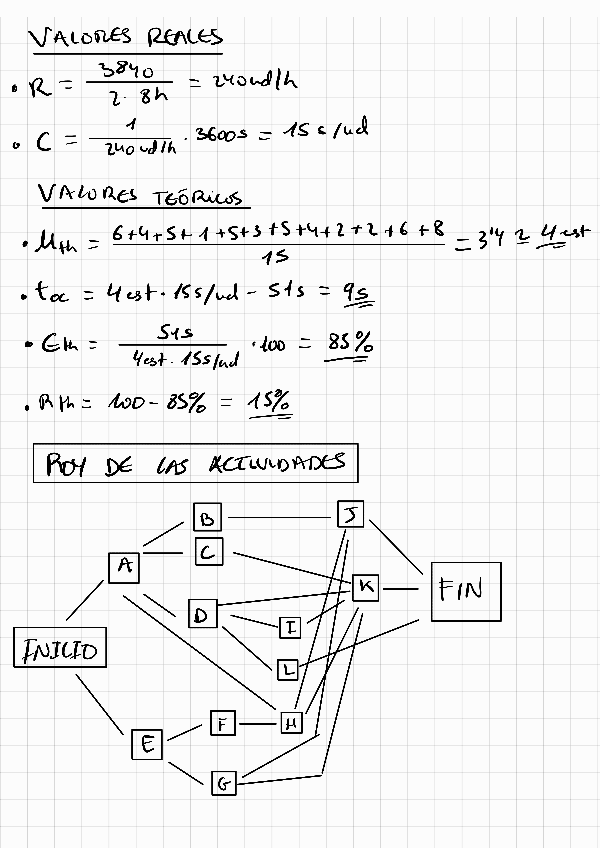 VALORES REALES
• R = 3840 / 2 · 8h = 240 ud/h
• C = 1 / 240 ud/h · 3600s = 15 s/ud
VALORES TEÓRICOS
• Mth = 6+4+5+1+5+3+5+4+2+2+6+8 / 15 = 3'4 ≅ 4 est
• toc = 4 est · 15 s/ud - 51s = 9s
• Eth = 51s / 4 est · 15 s/ud · 100 = 85%
• Rth = 100 - 85% = 15%
ROY DE LAS ACTIVIDADES
B J
A C
K FIN
D I
INICIO
L
F H
E
G